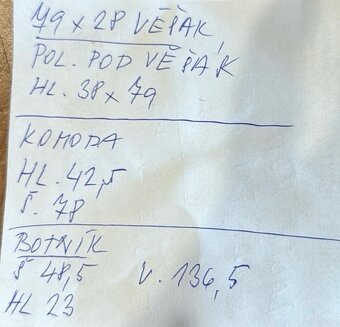 79 x 28 VĚŠÁK
POL. POD VĚŠÁK
HL. 38 x 79
KOMODA
HL. 42,5
Š. 78
BOTNÍK
Š 48,5 V. 136,5
HL 23